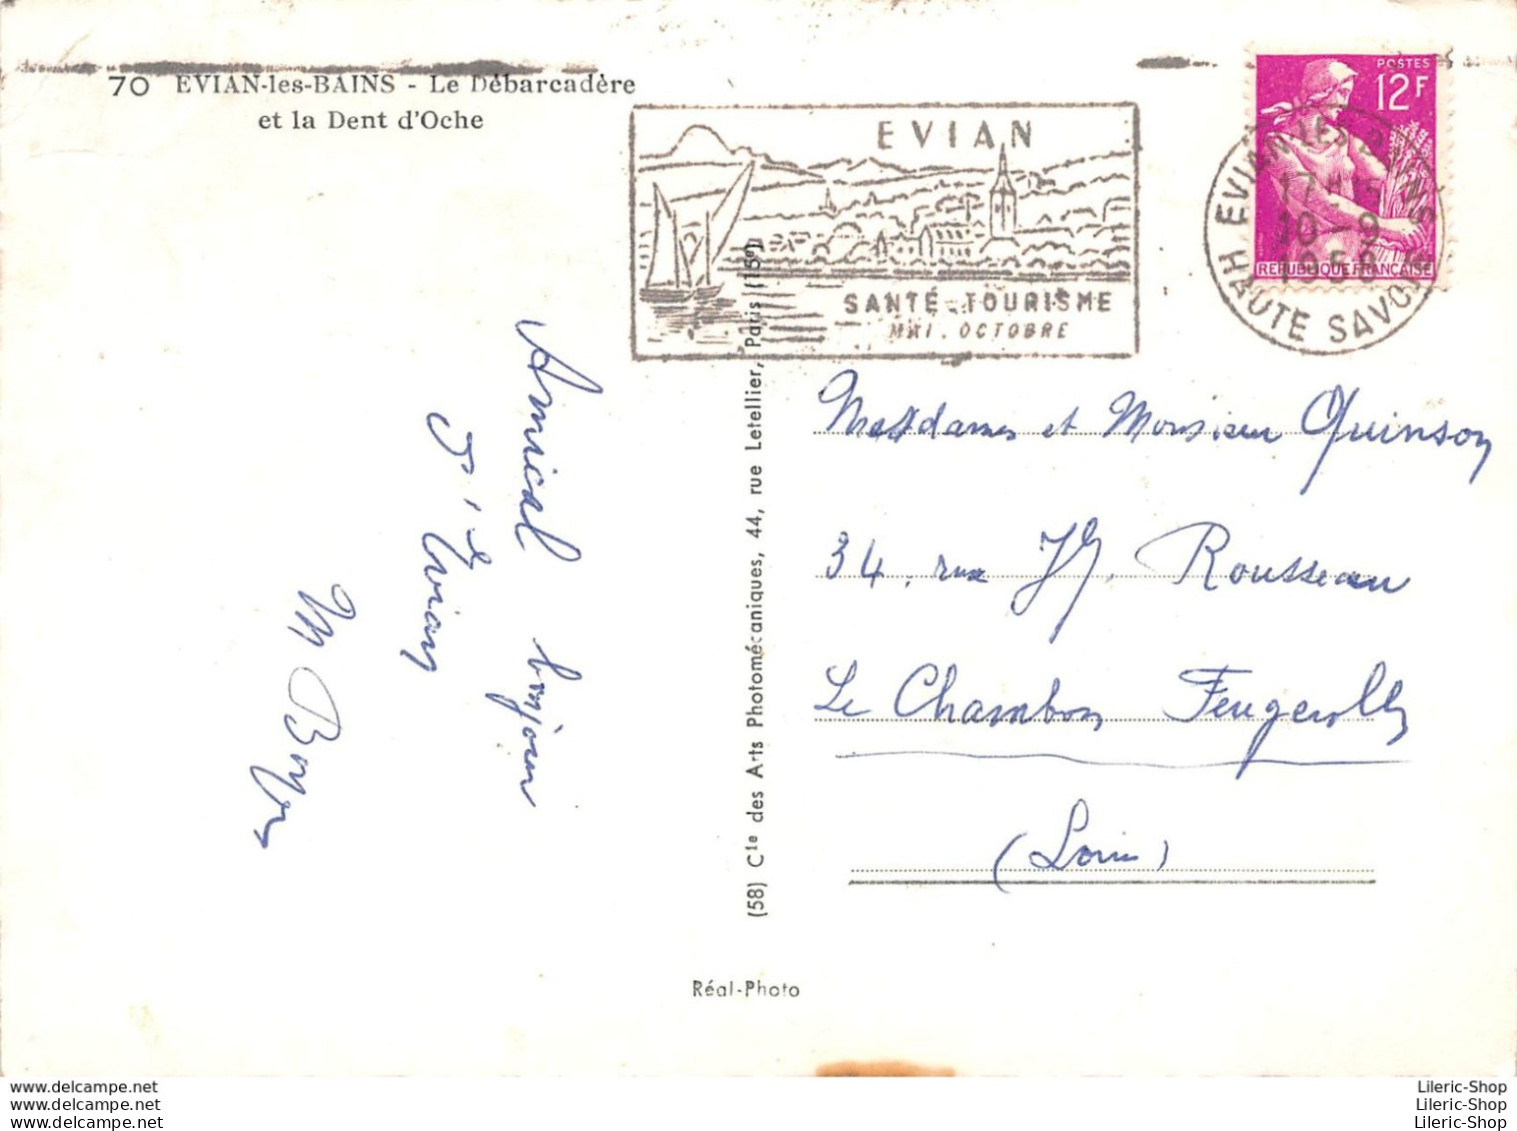 70 EVIAN-les-BAINS - Le Débarcadère
et la Dent d'Oche
EVIAN
SANTÉ - TOURISME
MAI. OCTOBRE
POSTES
12F
REPUBLIQUE FRANÇAISE
EVIAN-LES-BAINS
10-9
1958
HAUTE SAVOIE
Amical bonjour
d'Evian
M Boyer
(58) Cie des Arts Photomécaniques, 44, rue Letellier, Paris (15e)
Mesdames et Monsieur Quinson
34, rue JJ. Rousseau
Le Chambon Feugerolles
(Loire)
Réal-Photo
www.delcampe.net
www.delcampe.net
www.delcampe.net
Lileric-Shop
Lileric-Shop
Lileric-Shop